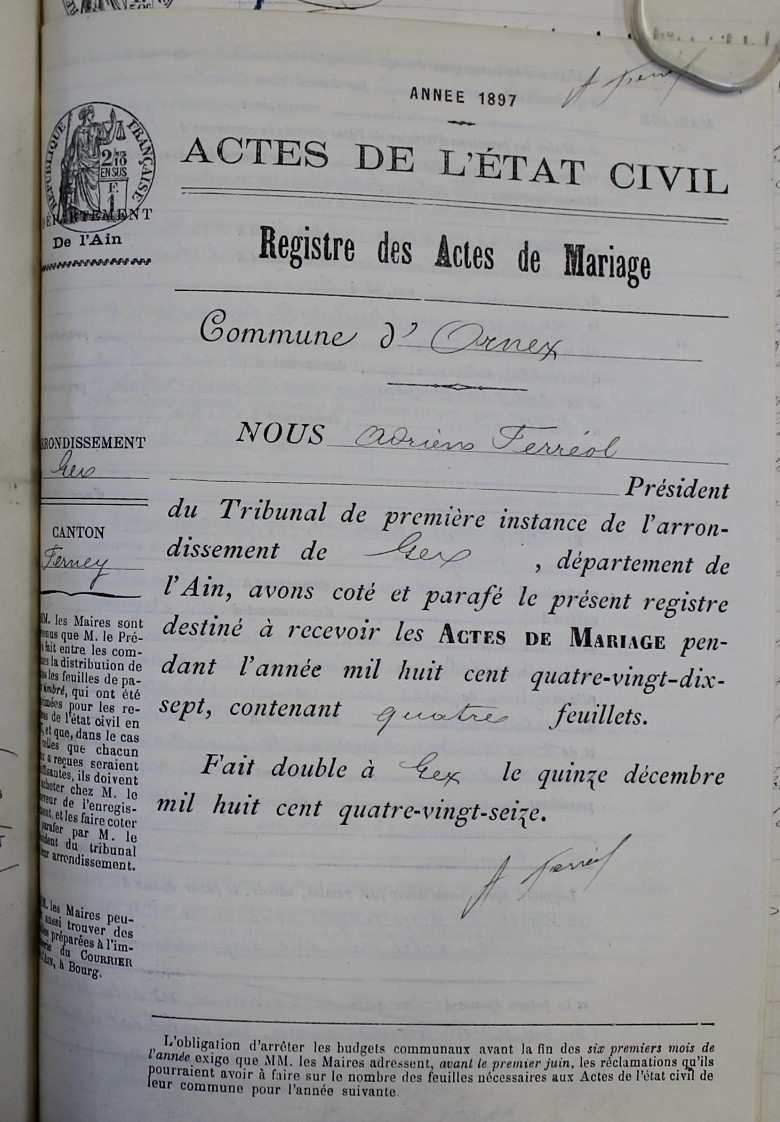 ANNEE 1897
A Ferréol
RÉPUBLIQUE FRANÇAISE
2/10
EN SUS
DÉPARTEMENT
De l'Ain
ACTES DE L'ÉTAT CIVIL
Registre des Actes de Mariage
Commune d' Ornex
NOUS Adrien Ferréol
Président
du Tribunal de première instance de l'arron-
dissement de Gex, département de
l'Ain, avons coté et parafé le présent registre
destiné à recevoir les ACTES DE MARIAGE pen-
dant l'année mil huit cent quatre-vingt-dix-
sept, contenant quatre feuillets.
Fait double à Gex le quinze décembre
mil huit cent quatre-vingt-seize.
A Ferréol
RONDISSEMENT
Gex
CANTON
Ferney
MM. les Maires sont
enus que M. le Pré-
fait entre les com-
s la distribution de
les feuilles de pa-
timbré, qui ont été
imées pour les re-
s de l'état civil en
, et que, dans le cas
elles que chacun
a reçues seraient
ffisantes, ils doivent
acheter chez M. le
eveur de l'enregis-
ment, et les faire coter
parafer par M. le
sident du tribunal
eur arrondissement.
M. les Maires peu-
aussi trouver des
les préparées à l'im-
erie du COURRIER
'AIN, à Bourg.
L'obligation d'arrêter les budgets communaux avant la fin des six premiers mois de
l'année exige que MM. les Maires adressent, avant le premier juin, les réclamations qu'ils
pourraient avoir à faire sur le nombre des feuilles nécessaires aux Actes de l'état civil de
leur commune pour l'année suivante.